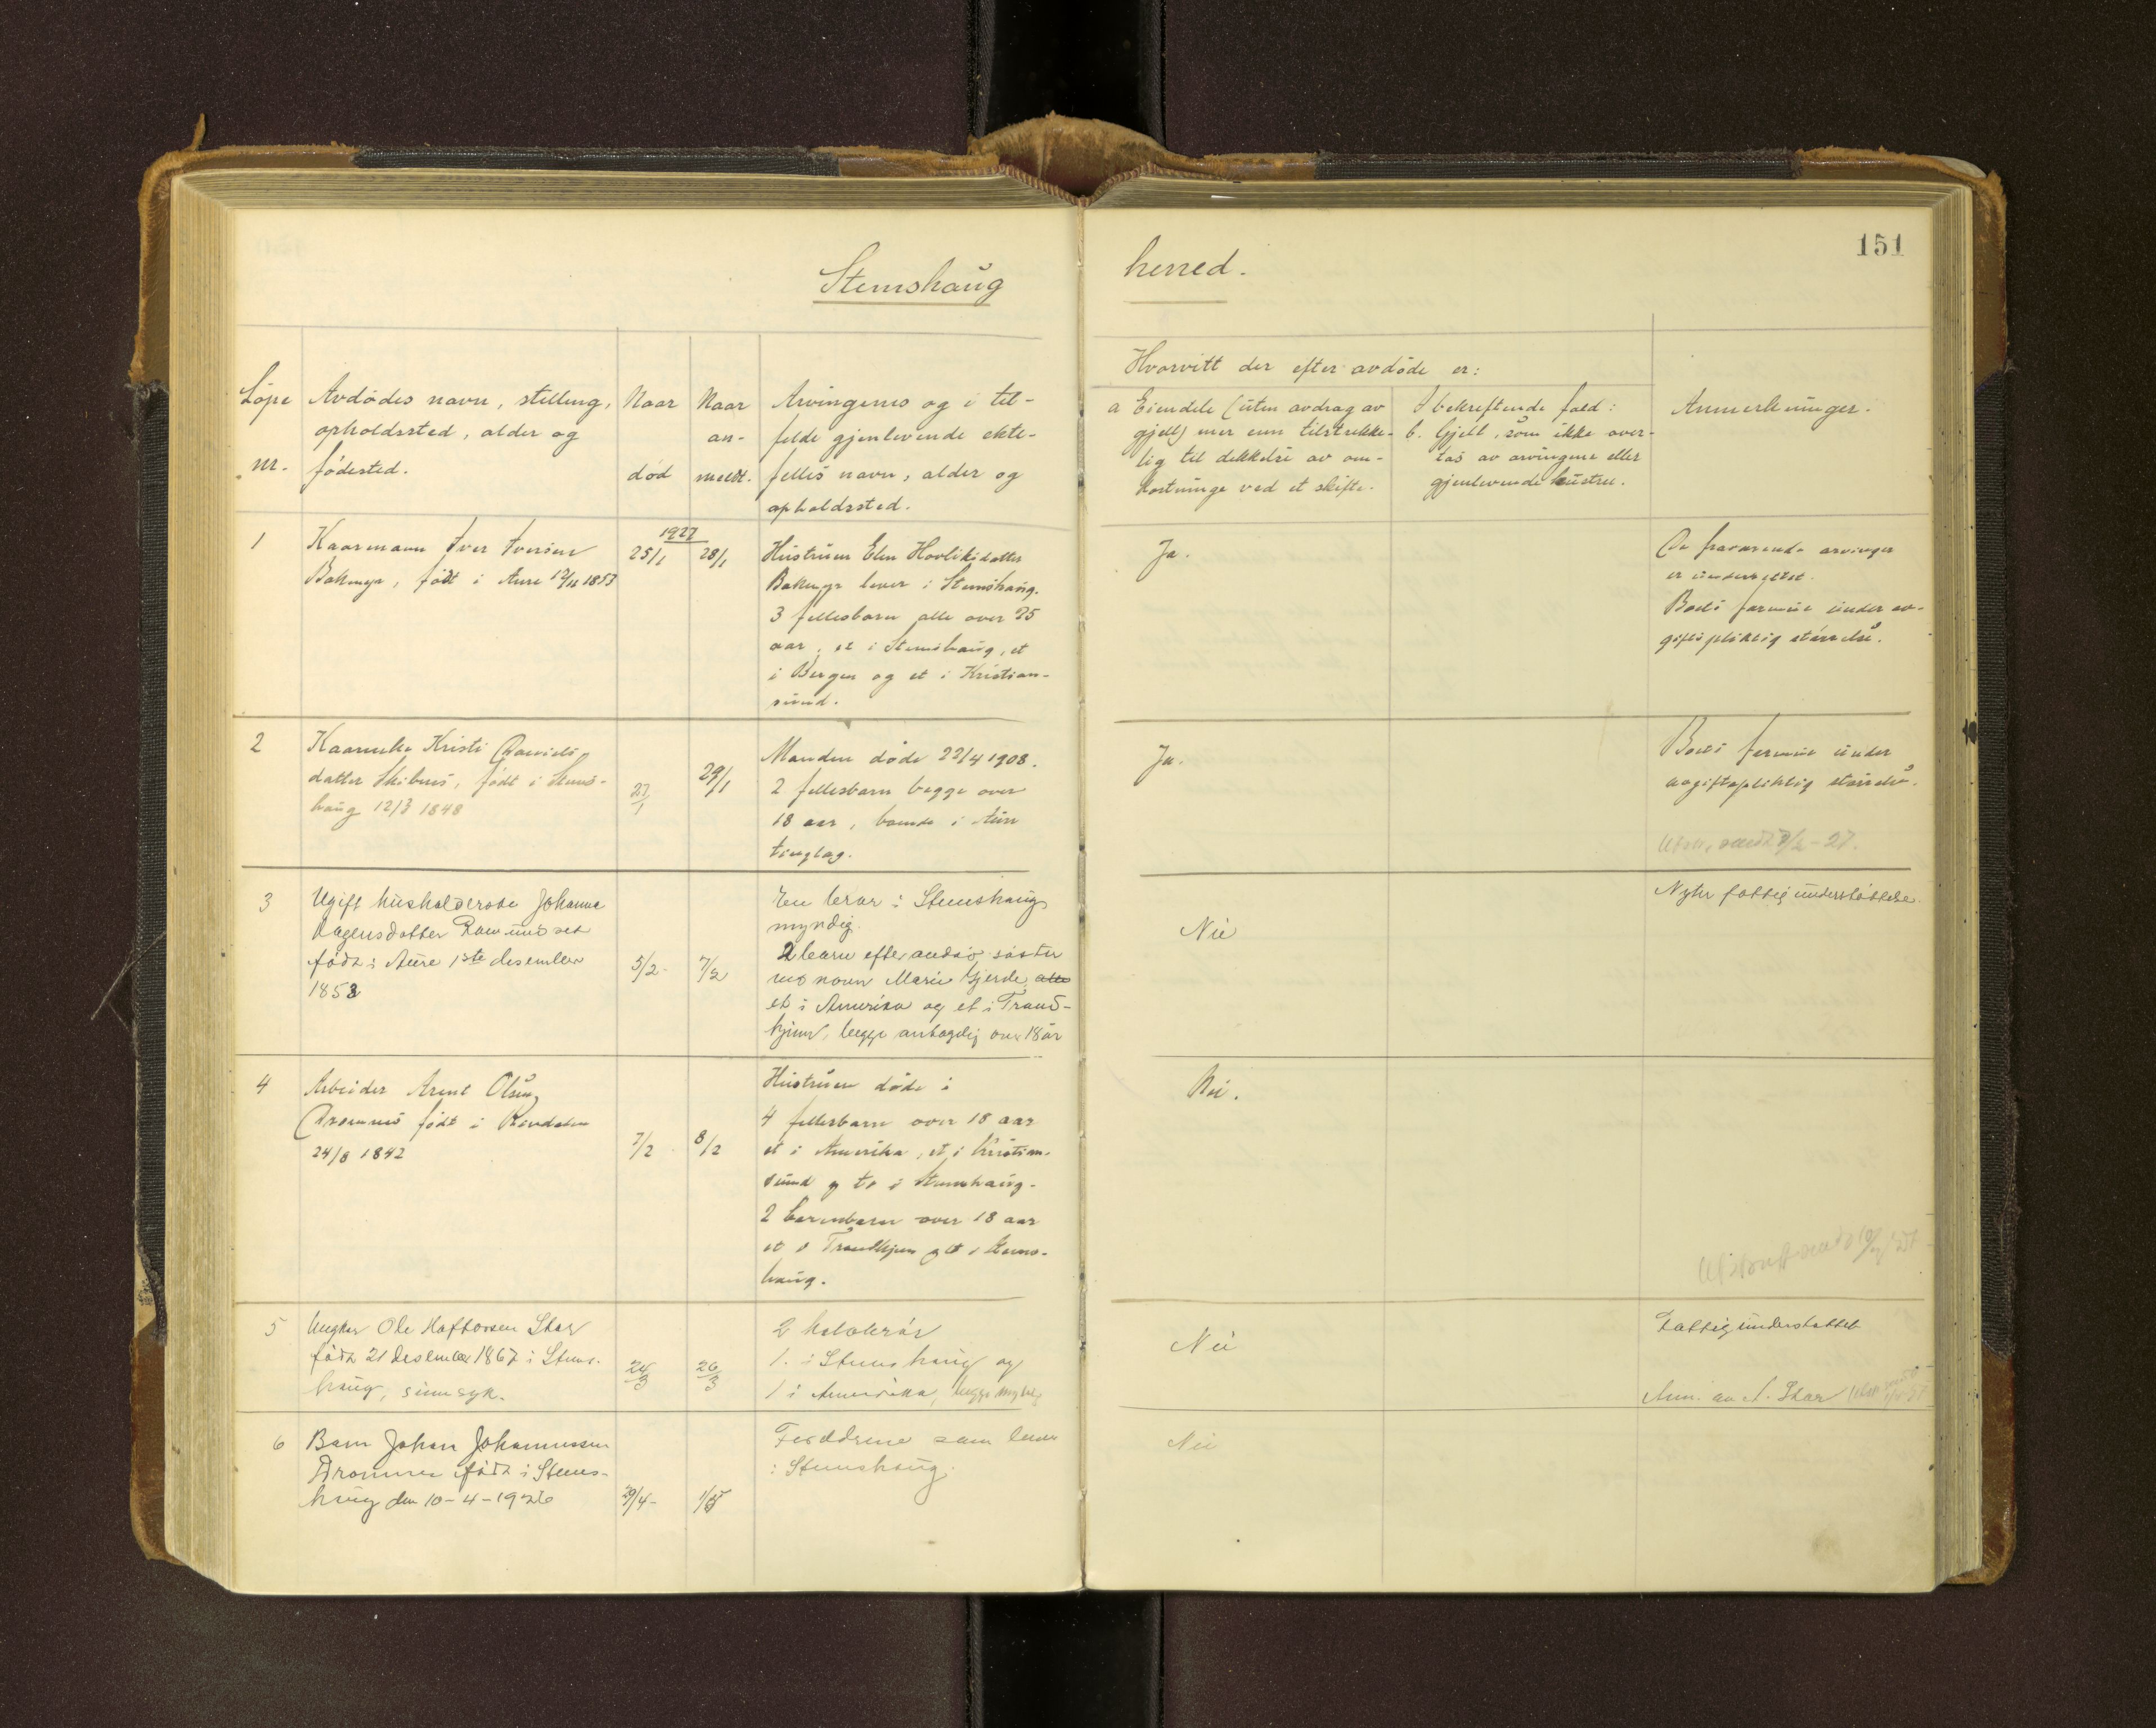 151
Stemshaug herred.
Löpe nr.
Avdödes navn, stilling,
opholdssted, alder og
födested.
Naar
död
Naar
an-
meldt.
Arvingenes og i til-
felde gjenlevende ekte-
felles navn, alder og
opholdssted.
Hvorvitt der efter avdöde er:
a Eiendele (uten avdrag av
gjeld) mer enn tilstrekke-
lig til dekkelse av om-
kostninge ved et skifte.
I bekreftende fald:
b. Gjeld, som ikke over-
tas av arvingene eller
gjenlevende hustru.
Anmerkninger.
1
Kaarmann Iver Iversen
Bakmyr, födt i Aure 12/11 1853
1927
25/1
28/1
Hustruen Elen Hovliksdatter
Bakmyr lever i Stemshaug.
3 fellesbarn alle over 25
aar, et i Stemshaug, et
i Bergen og et i Kristian-
sund.
Ja.
De fraværende arvinger
er underrettet.
Boets formue under av-
giftspliktig störrelse.
2
Kaarenke Kristi
datter Skibnes, födt i Stems-
haug 12/3 1848
27/1
29/1
Manden döde 22/4 1908.
2 fellesbarn begge over
18 aar, boende i Aure
tinglag.
Ja.
Boets formue under
avgiftspliktig störrelse.
Utskr. sendt /2-27.
3
Ugift husholderske Johanna
födt i Aure 1ste desember
1853
5/2-
7/2
En bror i Stemshaug
myndig.
2 barn efter avdöd söster
ved navn Marie Gjerde,
et i Amerika og et i Trond-
hjem, begge antagelig over 18 år
Nei
Nyter fattigunderstöttelse.
4
Arbeider Arent Olsen
Dromnes födt i Rindalen
24/8 1842
7/2
8/2
Hustruen döde i
4 fellesbarn over 18 aar
et i Amerika, et i Kristian-
sund og to i Stemshaug.
2 barnebarn over 18 aar
et i Trondhjem og et i Stems-
haug.
Nei.
Utskrift sendt
5
Ungkar Ole Haftorsen Skar
födt 21 desember 1867 i Stems-
haug, sinnsyk.
24/3
26/3
2 halvbrör
1. i Stemshaug og
1 i Amerika, begge myndig
Nei
Fattigunderstöttet
Anm. av A. Skar
6
Barn Johan Johannessen
Dromnes födt i Stems-
haug den 10-4-1926
29/4-
1/5
Foreldrene som lever
i Stemshaug.
Nei